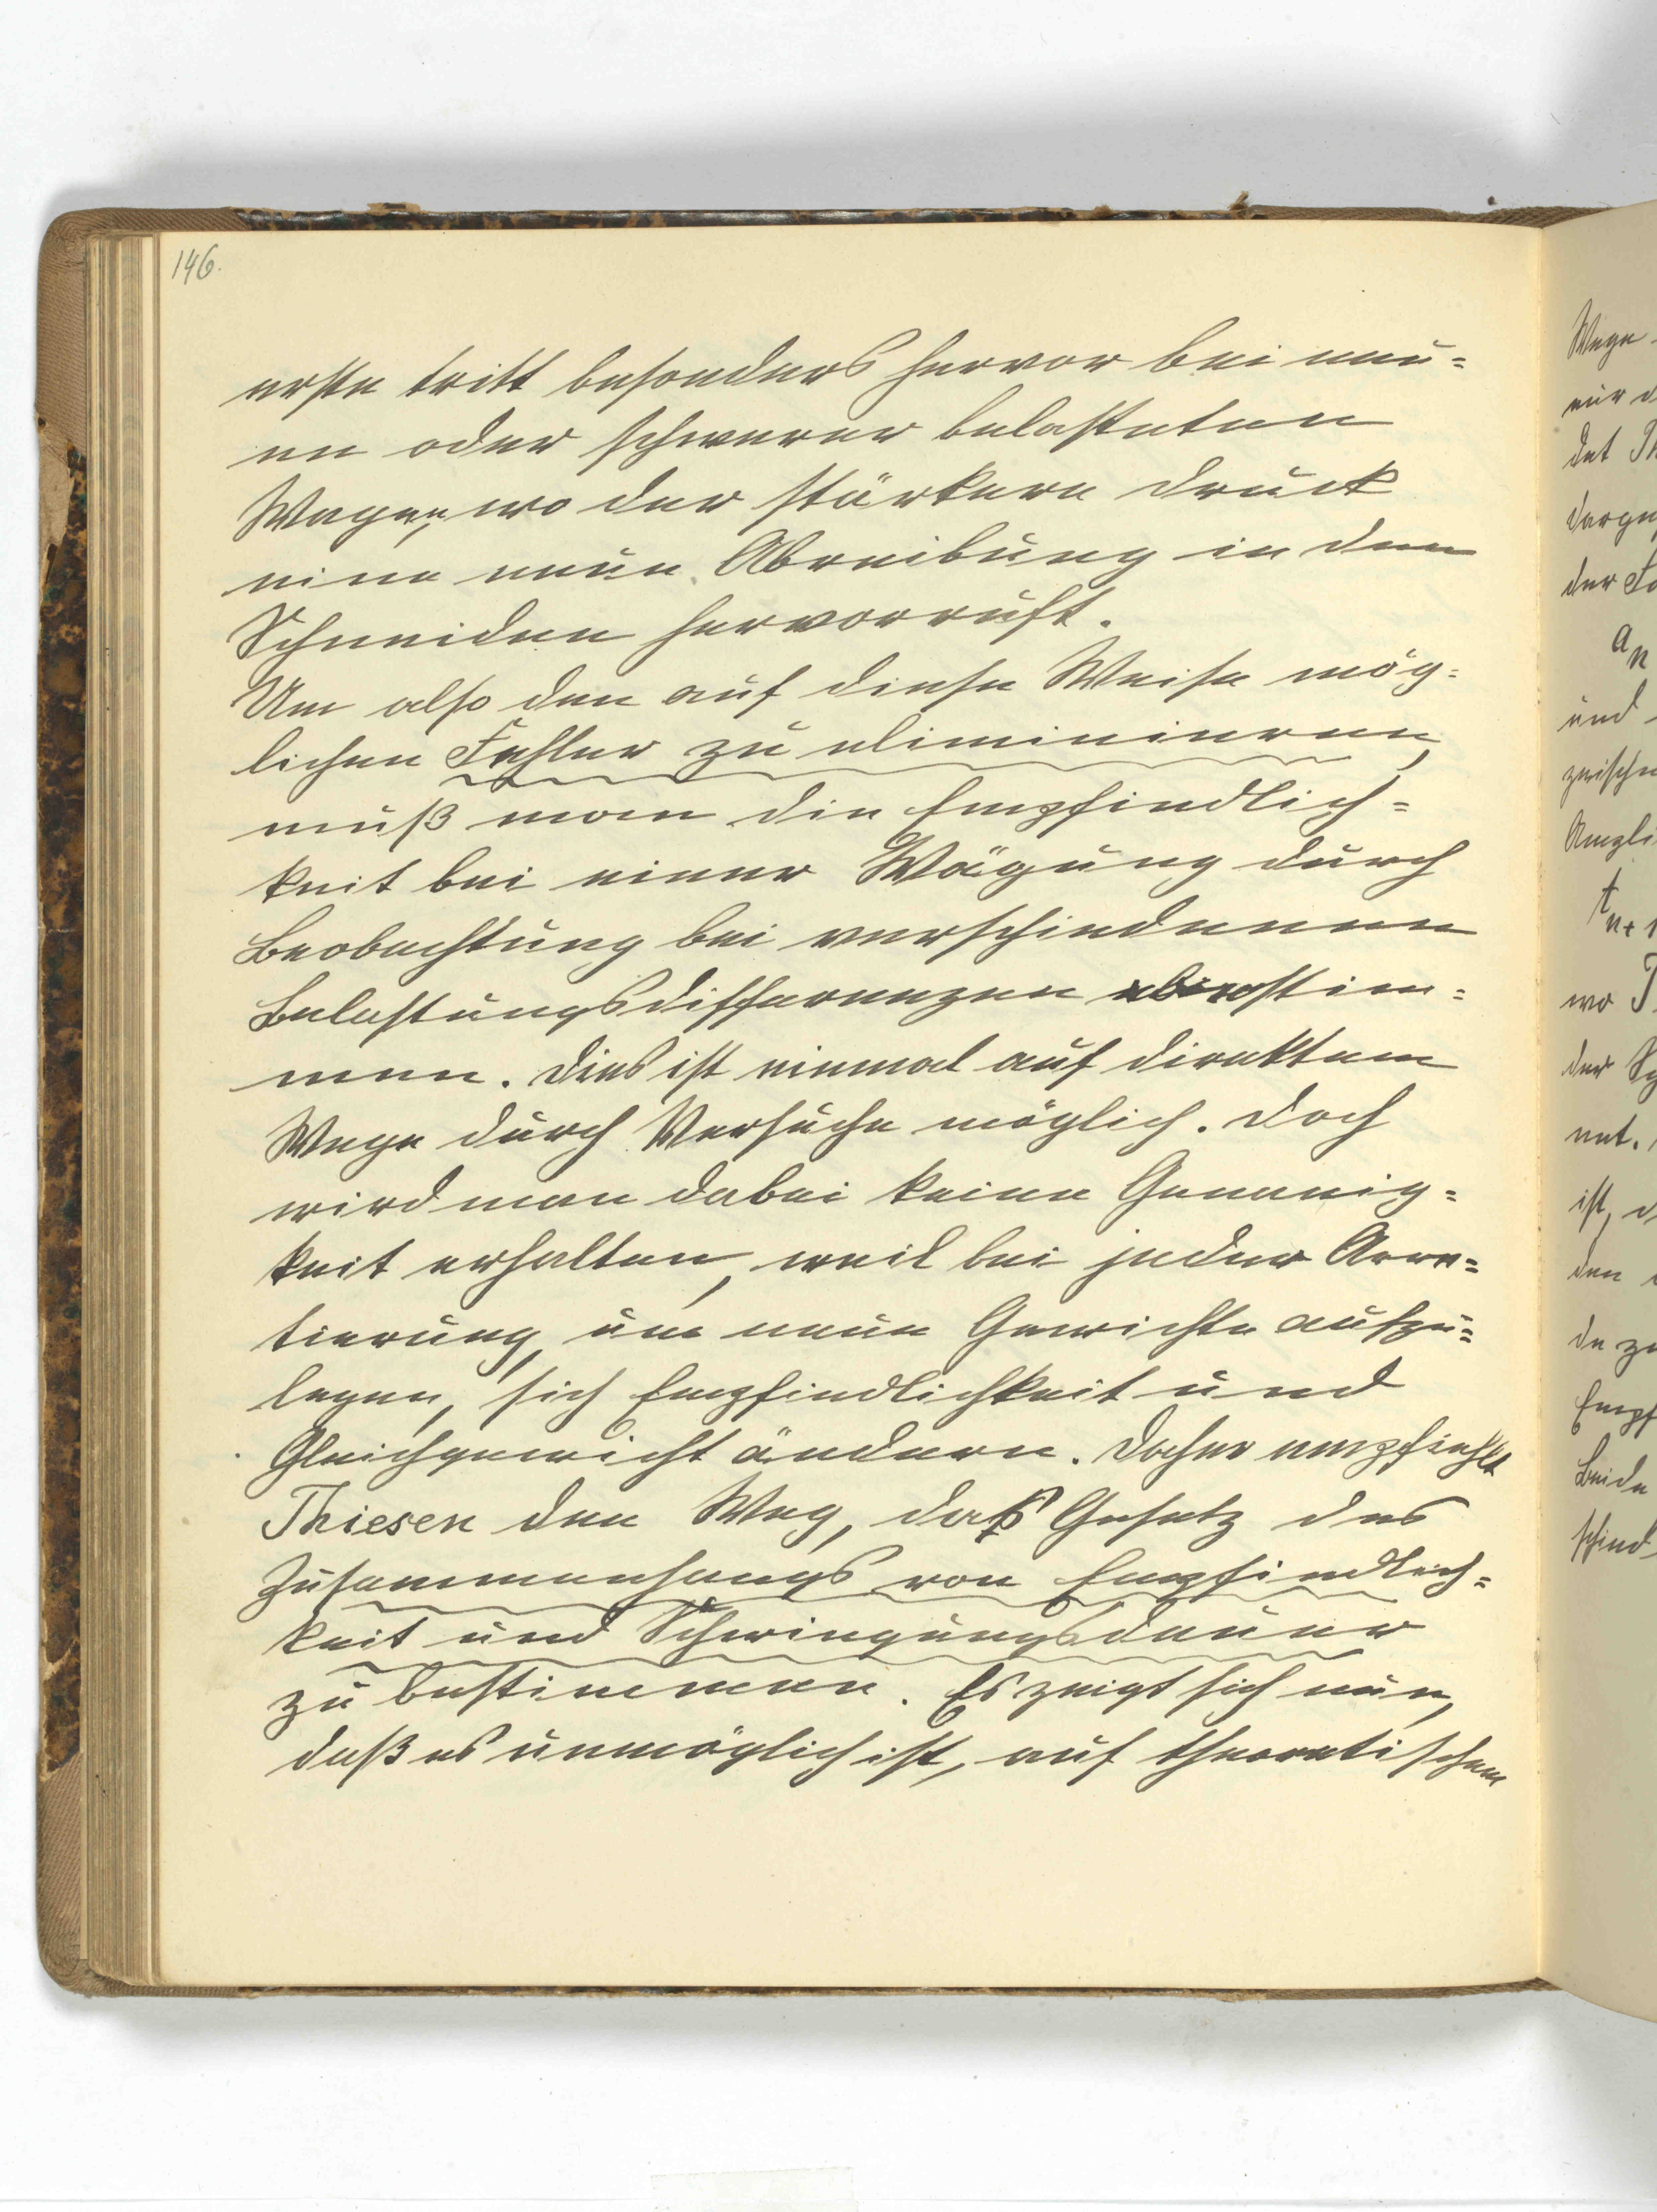 146.
erste tritt besonders hervor bei neu=
en oder schwerer belasteten
Wagen, wo der stärkere Druck
eine neue Abreibung in den
Schneiden hervorruft.
Um also den auf diese Weise mög=
lichen Fehler zu eliminieren,
muß man die Empfindlich=
keit bei einer Wägung durch
Beobachtung bei verschiedenen
Belastungsdifferenzen bestim=
men. Dies ist einmal auf direktem
Wege durch Versuche möglich. Doch
wird man dabei keine Genauig=
keit erhalten, weil bei jeder Arre=
tierung, um neue Gewichte aufzu=
legen, sich Empfindlichkeit und
Gleichgewicht ändern. Daher empfiehlt
Thiesen den Weg, das Gesetz des
Zusammenhangs von Empfindlich=
keit und Schwingungsdauer
zu bestimmen. Es zeigt sich nun,
daß es unmöglich ist, auf theoretischem
Wege
nur
det Th
der Fo
an
und
zwischen
tn+1
wo T
der
net.
ist,
den
de zu
Empf
Beide
schied